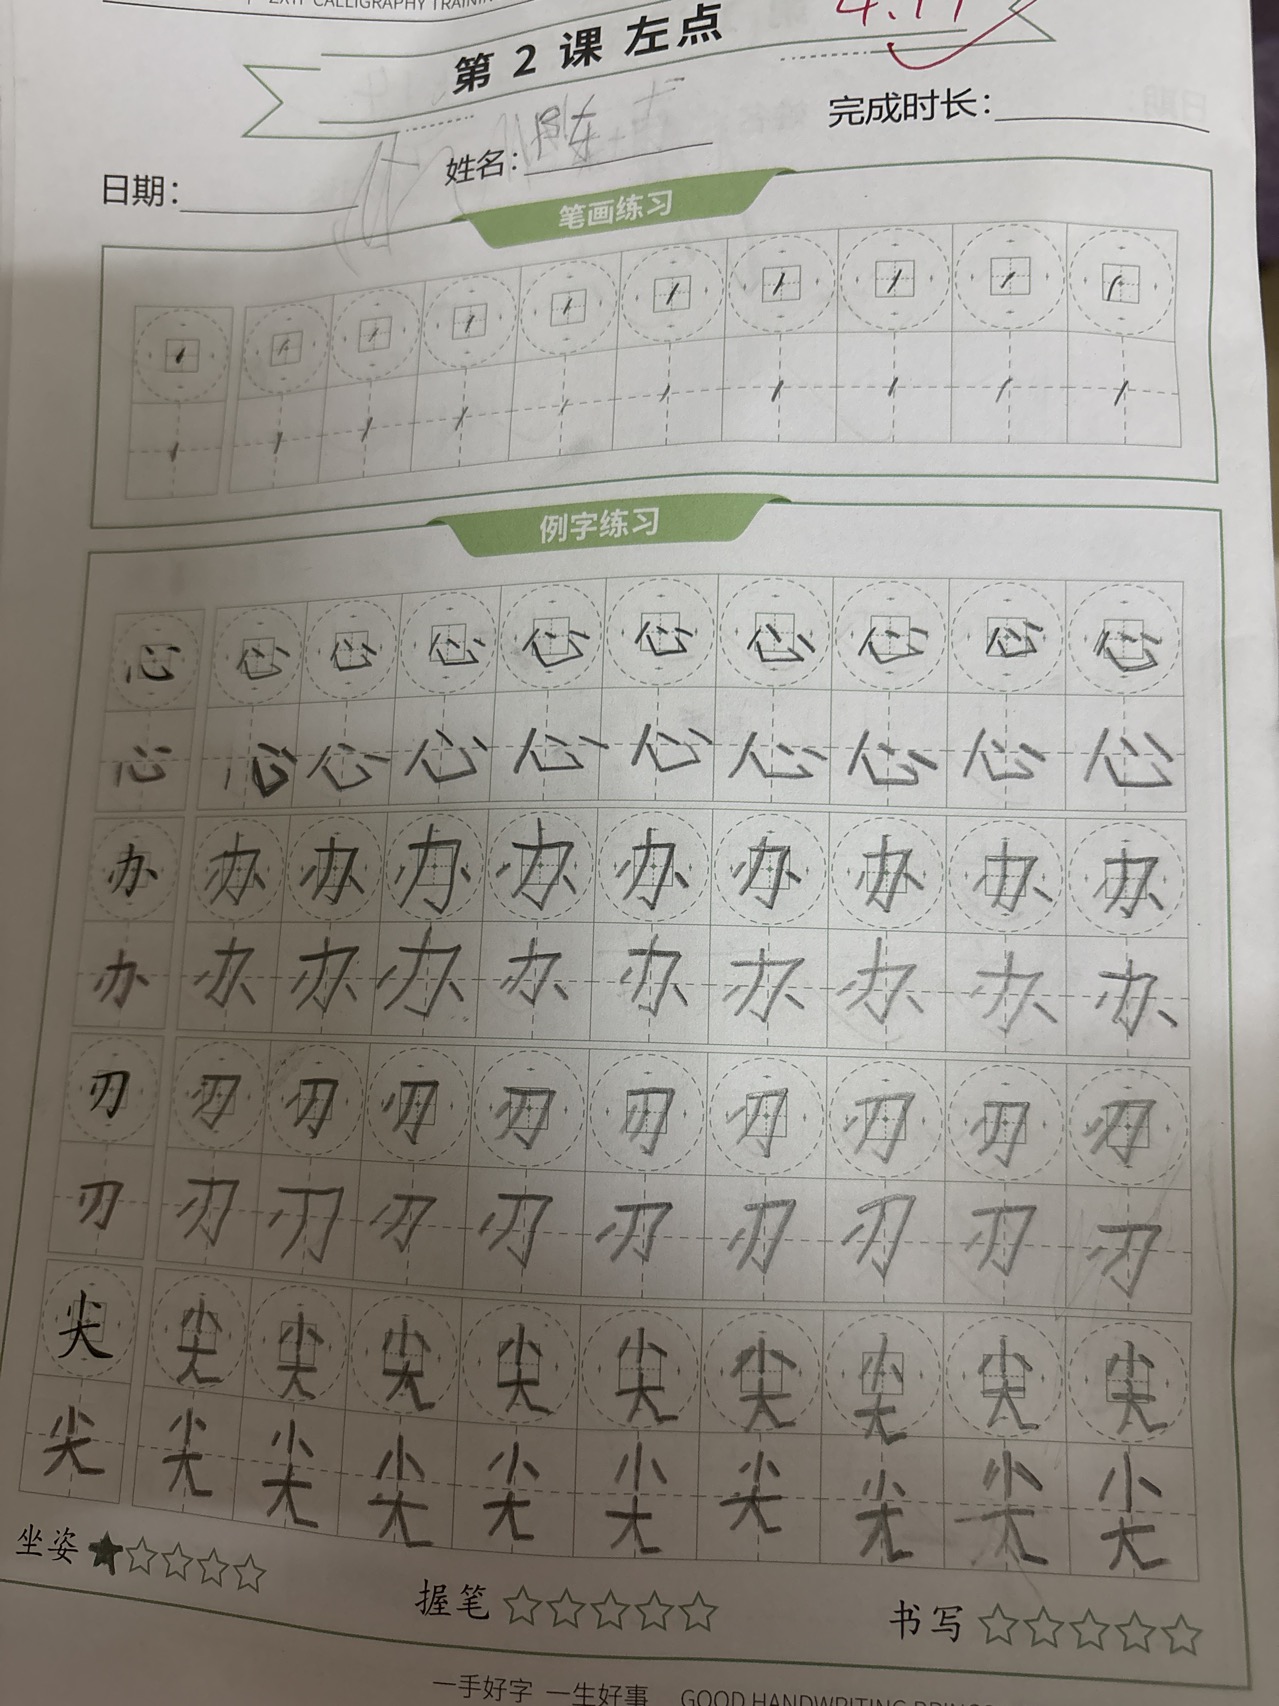 CALLIGRAPHY TRAININ
第 2 课 左点
4.11
完成时长：
姓名：
日期：
笔画练习
例字练习
心 心 心 心 心 心 心 心 心 心
心 心 心 心 心 心 心 心 心 心
办 办 办 办 办 办 办 办 办 办
办 办 办 办 办 办 办 办 办 办
刃 刃 刃 刃 刃 刃 刃 刃 刃 刃
刃 刃 刃 刃 刃 刃 刃 刃 刃 刃
尖 尖 尖 尖 尖 尖 尖 尖 尖 尖
尖 尖 尖 尖 尖 尖 尖 尖 尖 尖
坐姿 ★☆☆☆☆ 握笔 ☆☆☆☆☆ 书写 ☆☆☆☆☆
一手好字 一生好事 GOOD HANDWRITING BRINGS